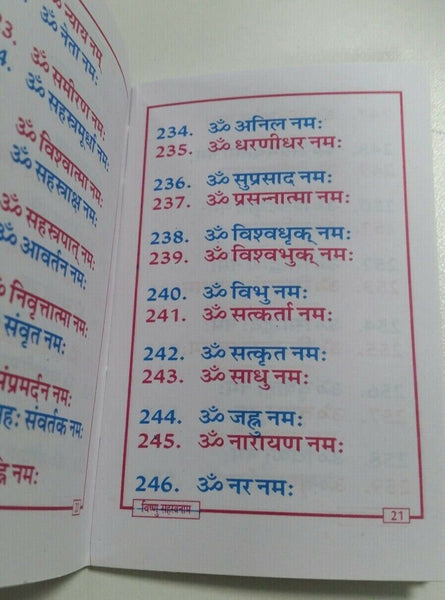 ॐ न्याय नम
ॐ नेता नमः
ॐ समीरण नमः
ॐ सहस्त्रमूर्धा नमः
ॐ विश्वात्मा नमः
ॐ सहस्त्राक्ष नमः
ॐ सहस्त्रपात् नमः
ॐ आवर्तन नमः
ॐ निवृत्तात्मा नमः
संवृत नमः
संप्रमर्दन नमः
संवर्तक नमः
नमः
234. ॐ अनिल नमः
235. ॐ धरणीधर नमः
236. ॐ सुप्रसाद नमः
237. ॐ प्रसन्नात्मा नमः
238. ॐ विश्वधृक् नमः
239. ॐ विश्वभुक् नमः
240. ॐ विभु नमः
241. ॐ सत्कर्ता नमः
242. ॐ सत्कृत नमः
243. ॐ साधु नमः
244. ॐ जह्नु नमः
245. ॐ नारायण नमः
246. ॐ नर नमः
विष्णु सहस्त्रनाम
21